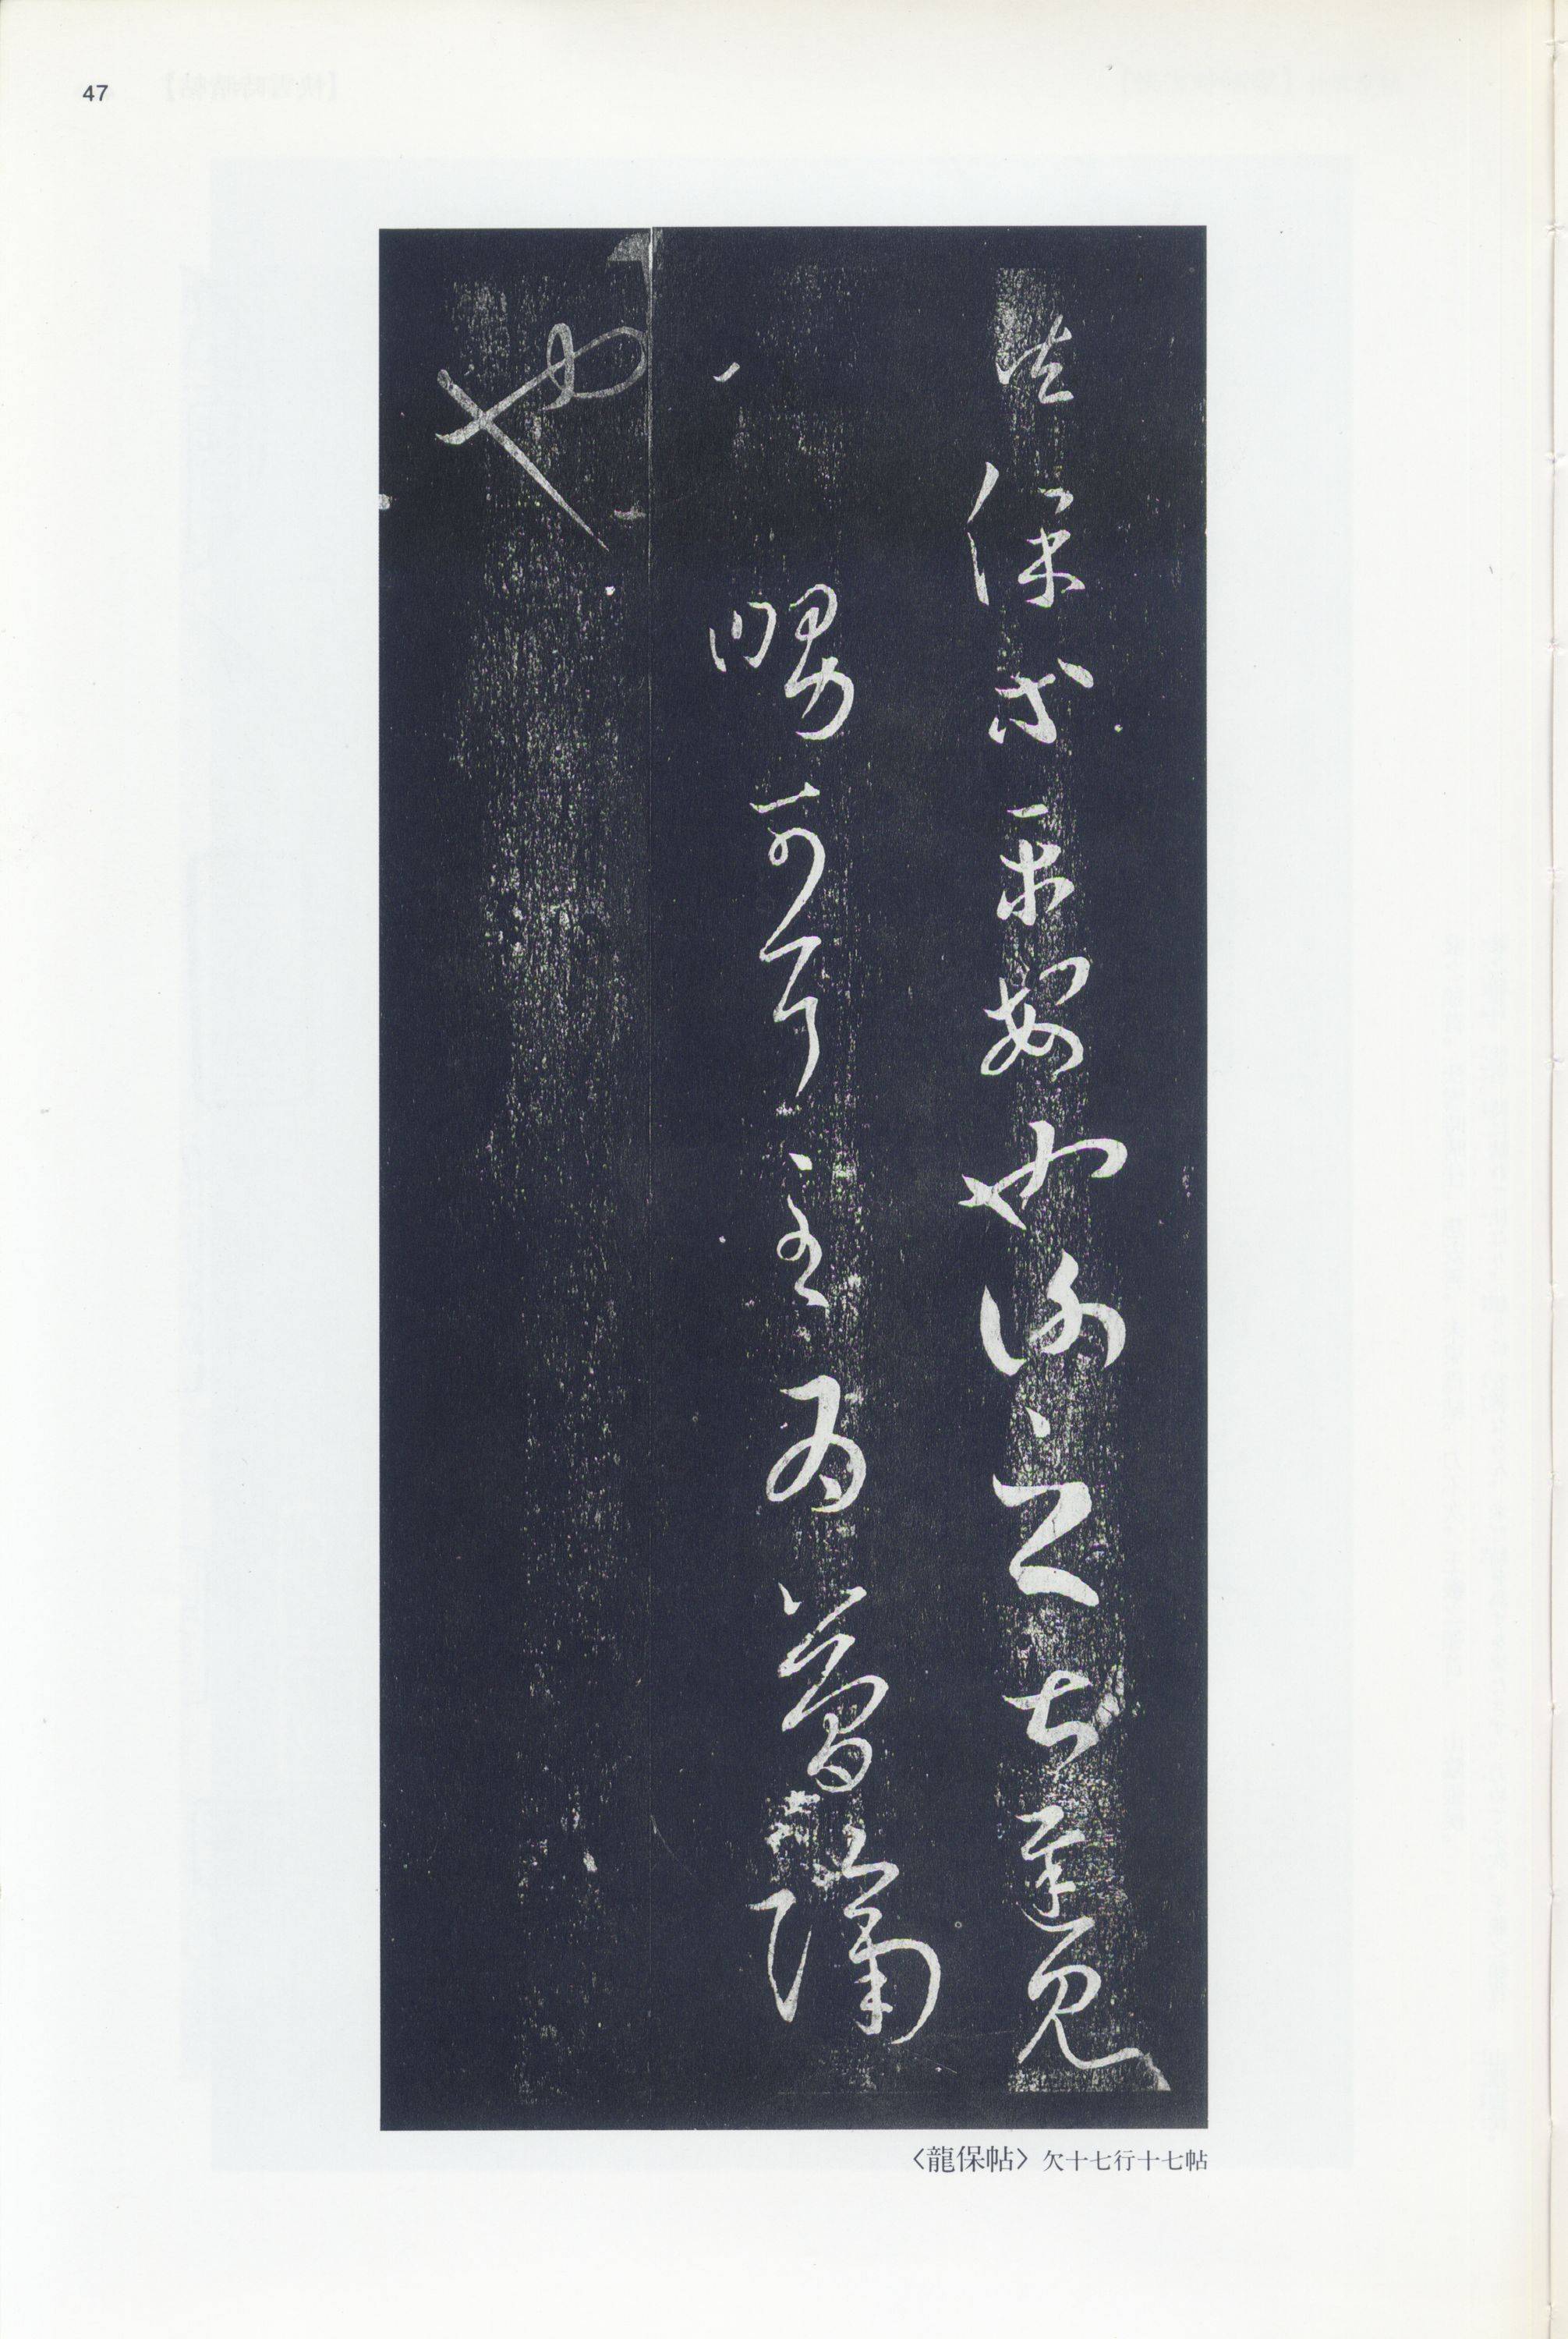 47
龍保等平安也謝之甚遲見
卿舅可耳至為簡隔
也
〈龍保帖〉欠十七行十七帖